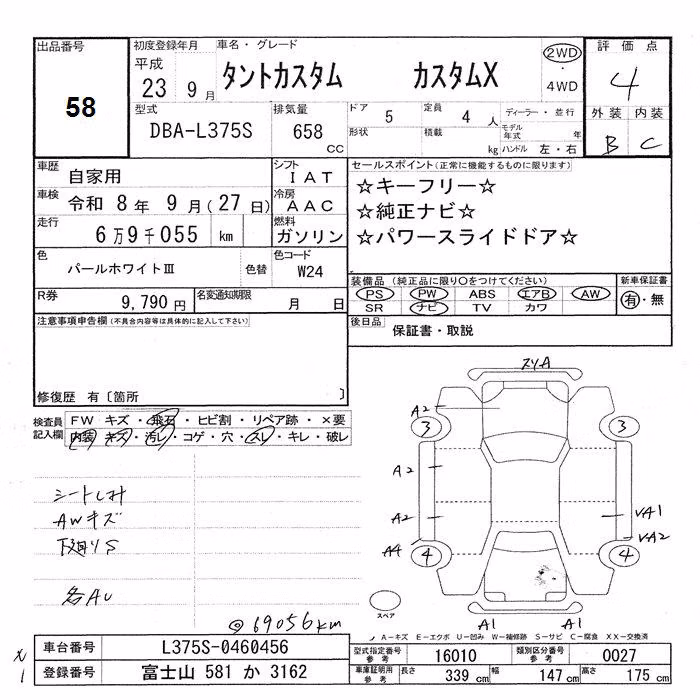 出品番号 58
初度登録年月 平成 23年 9月
車名・グレード タントカスタム カスタムX
2WD・4WD
評価点 4
外装 B 内装 C
型式 DBA-L375S
排気量 658 CC
ドア 5
形状
定員 4人
積載 kg
ディーラー・並行
モデル年式 年
ハンドル 左・右
車歴 自家用
シフト IAT
車検 令和 8年 9月(27日)
冷房 AAC
走行 6万9千055 km
燃料 ガソリン
色 パールホワイトⅢ 色替
色コード W24
R券 9,790円
名変通知期限 月 日
セールスポイント(正常に機能するものに限ります)
☆キーフリー☆
☆純正ナビ☆
☆パワースライドドア☆
装備品(純正品に限り○をつけてください)
PS PW ABS エアB AW
SR ナビ TV カワ
新車保証書 有・無
後日品 保証書・取説
注意事項申告欄(不具合内容等は具体的に記入して下さい)
修復歴 有〔箇所 〕
検査員記入欄
FW キズ・飛石・ヒビ割・リペア跡・×要
内装・キズ・汚レ・コゲ・穴・スレ・キレ・破レ
シートしみ
AWキズ
下廻りS
各AU
◎69056km
A2
3
3
A2
A2
A4
4
4
VA1
VA2
A1
A1
スペア
A-キズ E-エクボ U-凹み W-補修跡 S-サビ C-腐食 XX-交換済
車台番号 L375S-0460456
登録番号 富士山 581 か 3162
型式指定番号 参考 16010
類別区分番号 参考 0027
車庫証明用 参考 長さ 339 cm 幅 147 cm 高さ 175 cm